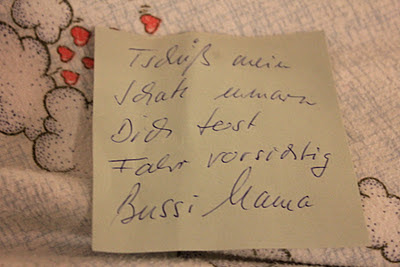 Tschüß mein
Schatz umarm
Dich fest
Fahr vorsichtig
Bussi Mama